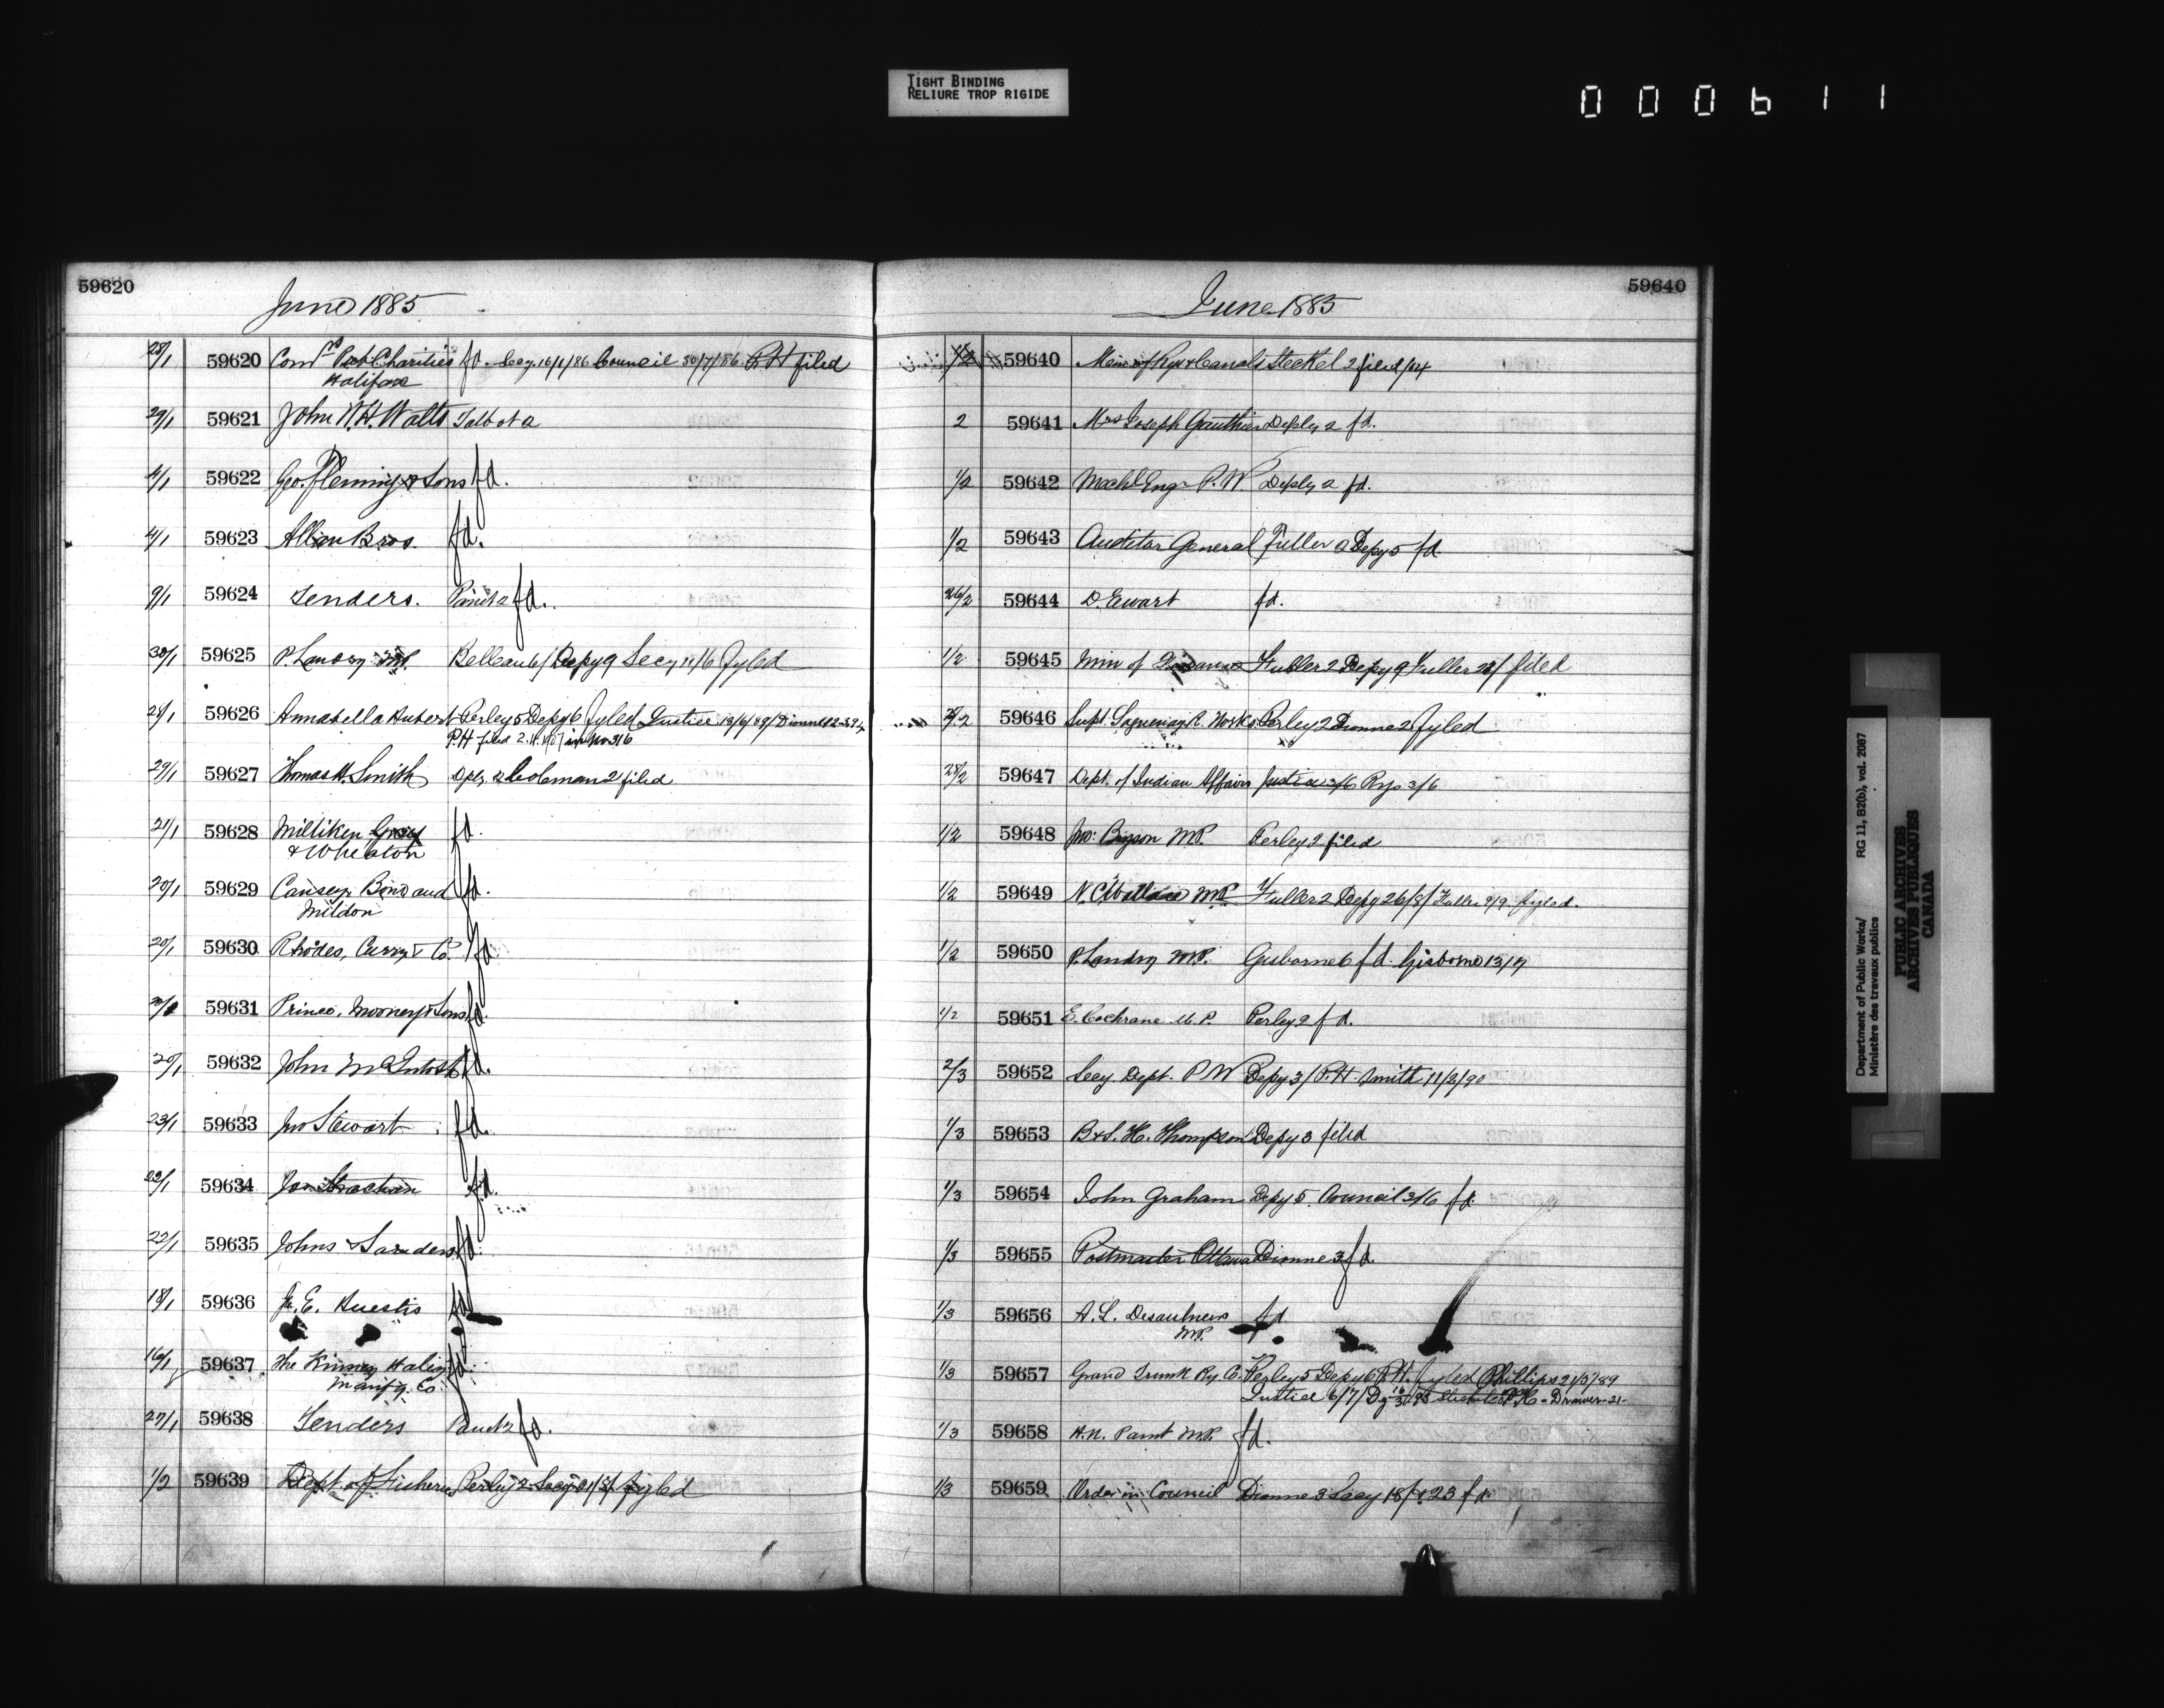 TIGHT BINDING
RELIURE TROP RIGIDE
000611
59620
June 1885
28/1 59620 Comrs Charities fd. Secy 16/1/86 Council 30/7/86 P.H filed
Halifax
29/1 59621 John W.H. Watts Talbot 2
4/1 59622 Geo. Fleming & Sons fd.
4/1 59623 Allan Bros. fd.
9/1 59624 Tenders. fd.
30/1 59625 P. Landry MP. Belleau 6/ Depy 9 Secy 11/6 Fyled
28/1 59626 Annabella Hubert Perley 5 Depy 6 Fyled Justice 13/6/89/
P.H filed 2.11. in No 316
29/1 59627 Thomas H. Smith Dpy 2 Coleman 2 filed
21/1 59628 Milliken Gray fd.
& Wheaton
20/1 59629 Causey, Bond and fd.
Mildon
20/1 59630 Rhodes, Curry & Co. fd.
59631 Prince, Mooney & Sons fd.
20/1 59632 John McIntosh fd.
23/1 59633 Jno Stewart fd.
22/1 59634 Strachan fd.
22/1 59635 Johns & Sanders fd.
18/1 59636 E. Huestis fd
16/1 59637 The Kinney Haley fd.
Manifg. Co.
27/1 59638 Tenders fd.
1/2 59639 Dept. of Fisheries Perley 2 Secy fyled
59640
June 1885
1/2 59640 of Rys & Canals Steckel 2 filed
2 59641 Mrs Joseph Gauthier Deply 2 fd.
1/2 59642 Mechl Engr P.W. Deply 2 fd.
1/2 59643 Auditor General Fuller 2 Depy 5 fd
26/2 59644 D. Ewart fd.
1/2 59645 Min of Finance Fuller 2 Depy 9 Fuller filed
59646 Supt. Saguenay R. Works Perley 2 Dionne 2 fyled
28/2 59647 Dept. of Indian Affairs Justice 3/6 Rys 3/6
1/2 59648 Jno: Bryson M.P. Perley 2 filed
1/2 59649 N.C. Wallace MP Fuller 2 Depy 26/8/ Fuller fyled.
1/2 59650 P. Landry M.P. Gisborne 6 fd. Gisborne
1/2 59651 E. Cochrane M.P. Perley 2 fd.
2/3 59652 Secy. Dept. P W Depy 3/ P.H. Smith 11/2/90
1/3 59653 B & S. H. Thompson Depy 3 filed
1/3 59654 John Graham Depy 5. Council 3/6 fd.
1/3 59655 Postmaster Ottawa Dionne 3 fd.
1/3 59656 A. L. Desaulniers fd
MP.
1/3 59657 Grand Trunk Ry. Co. Perley 5 Depy 6 P.H. fyled Phillips
Justice 6/7/ Drawer 21.
1/3 59658 H.N. Paint M.P. fd.
1/3 59659 Order in Council Dionne 3 Secy 18/ 23 fd.
Department of Public Works/ RG 11, B2(b), vol. 2087
Ministère des travaux publics
PUBLIC ARCHIVES
ARCHIVES PUBLIQUES
CANADA